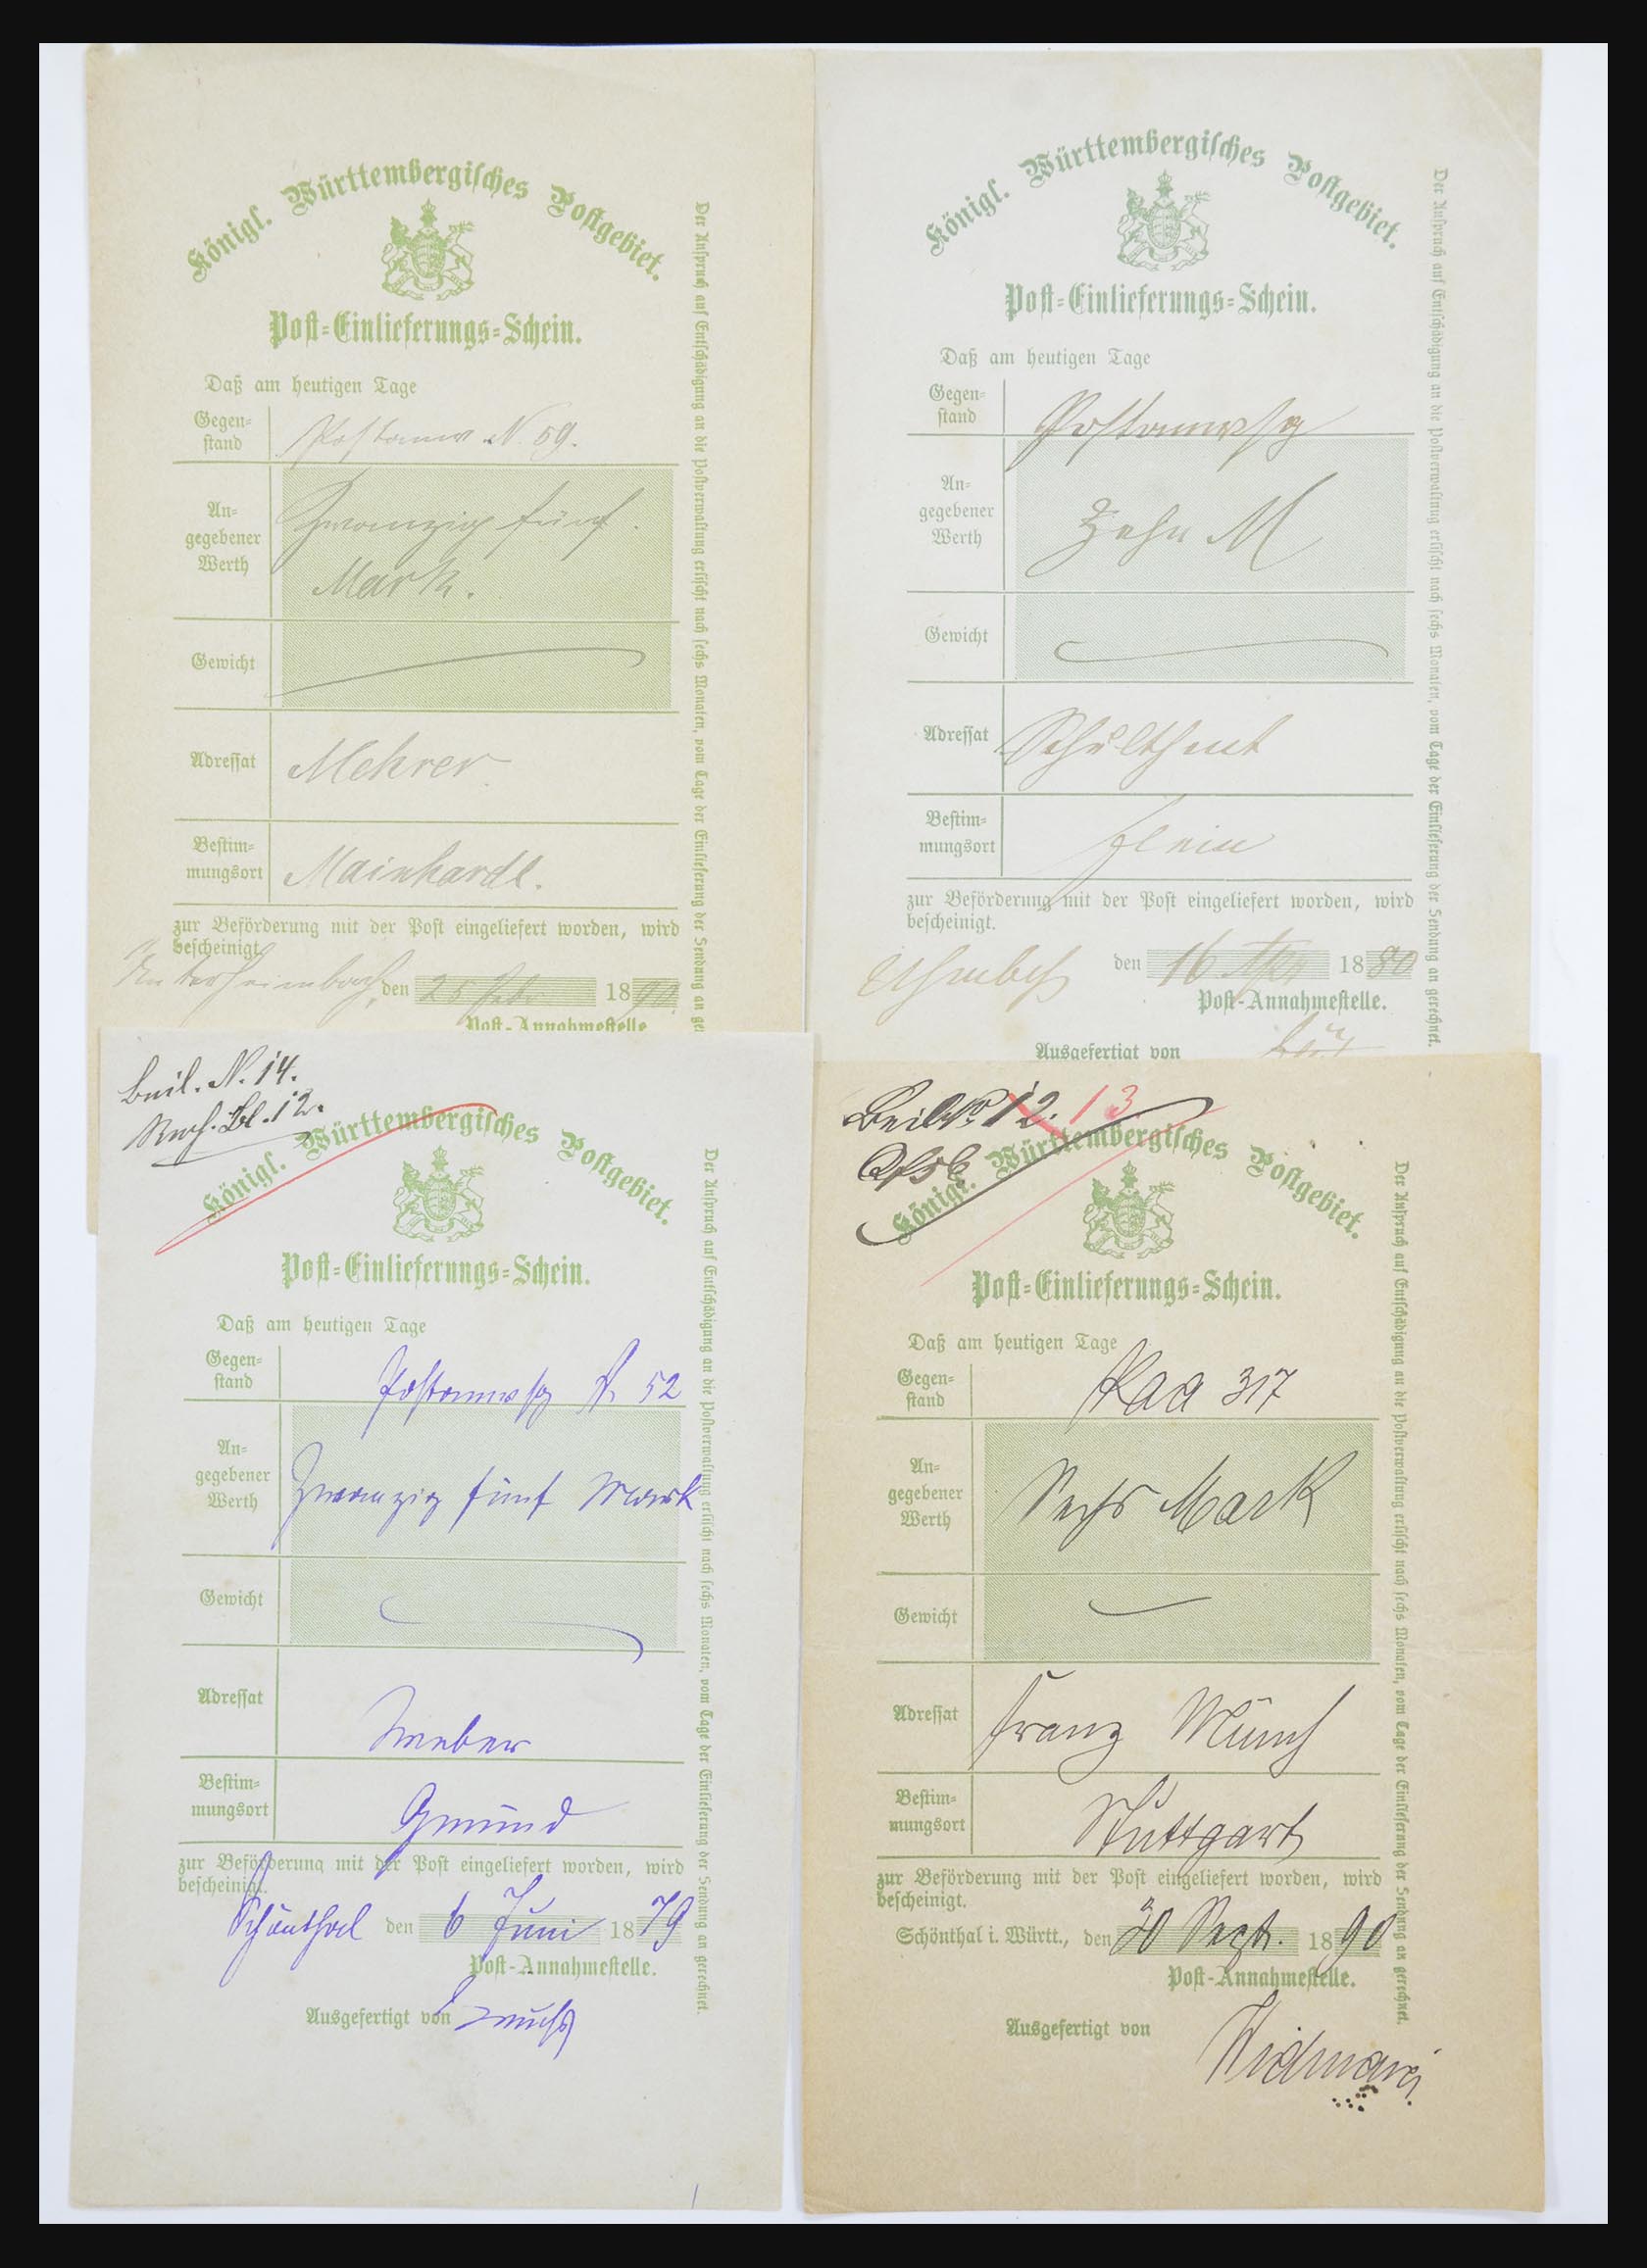 Königl. Württembergisches Postgebiet.
Post-Einlieferungs-Schein.
Daß am heutigen Tage
Gegen-
stand
Postanw. N. 59.
An-
gegebener
Werth
Zwanzig fünf
Mark.
Gewicht
Adressat
Mehrer
Bestim-
mungsort
Mainhardt.
zur Beförderung mit der Post eingeliefert worden, wird
bescheinigt.
Unterheimbach, den 25 Febr. 1890
Post-Annahmestelle
Der Anspruch auf Entschädigung an die Postverwaltung erlischt nach sechs Monaten, vom Tage der Einlieferung der Sendung an ge
Königl. Württembergisches Postgebiet.
Post-Einlieferungs-Schein.
Daß am heutigen Tage
Gegen-
stand
Postanwsg
An-
gegebener
Werth
Zehn M
Gewicht
Adressat
Schultheit
Bestim-
mungsort
Flein
zur Beförderung mit der Post eingeliefert worden, wird
bescheinigt.
den 16 1880
Post-Annahmestelle.
Ausgefertigt von
Der Anspruch auf Entschädigung an die Postverwaltung erlischt nach sechs Monaten, vom Tage der Einlieferung der Sendung an gerechnet.
Beil. N. 14.
Bl. 12.
Königl. Württembergisches Postgebiet.
Post-Einlieferungs-Schein.
Daß am heutigen Tage
Gegen-
stand
Postanwsg N. 52
An-
gegebener
Werth
Zwanzig fünf Mark
Gewicht
Adressat
Weber
Bestim-
mungsort
Gmünd
zur Beförderung mit der Post eingeliefert worden, wird
bescheinigt.
Schönthal den 6 Juni 1879
Post-Annahmestelle.
Ausgefertigt von
Der Anspruch auf Entschädigung an die Postverwaltung erlischt nach sechs Monaten, vom Tage der Einlieferung der Sendung an gerechnet.
Beil. No. 12. 13
Königl. Württembergisches Postgebiet.
Post-Einlieferungs-Schein.
Daß am heutigen Tage
Gegen-
stand
Paa 317
An-
gegebener
Werth
Sechs Mark
Gewicht
Adressat
Franz Münch
Bestim-
mungsort
Stuttgart
zur Beförderung mit der Post eingeliefert worden, wird
bescheinigt.
Schönthal i. Württ., den 30 Sept. 1890
Post-Annahmestelle.
Ausgefertigt von
Widmann
Der Anspruch auf Entschädigung an die Postverwaltung erlischt nach sechs Monaten, vom Tage der Einlieferung der Sendung an gerechnet.